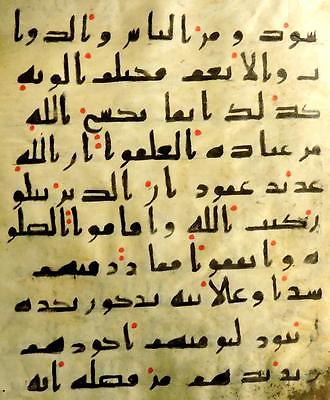 سود ومن الناس والدوا
ب والانعم مختلف الونه
كذلك انما يخشى الله
من عباده العلموا ان الله
عزيز غفور ان الذين يتلو
ن كتب الله واقاموا الصلو
ه وانفقوا مما رزقنهم
سرا وعلانيه يرجون تجره
لن تبور ليوفيهم اجورهم
ويزيدهم من فضله انه